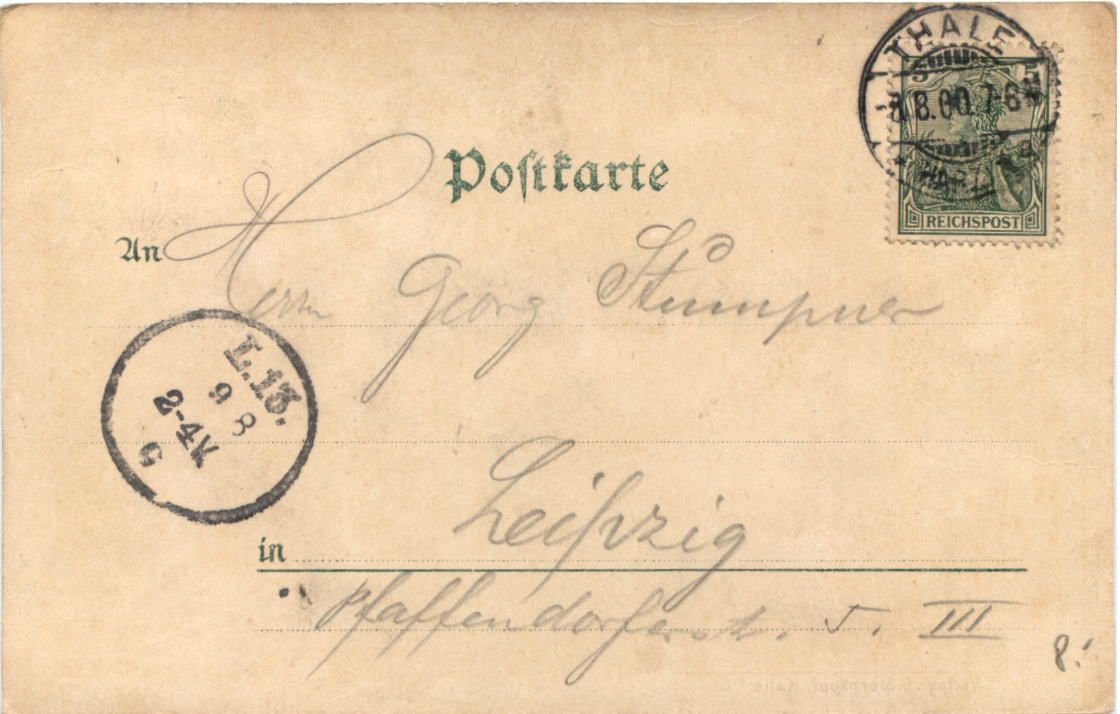 THALE
5
8.8.00.7-8N
HARZ
REICHSPOST
Postkarte
An
Herrn Georg Stumpner
L.13.
9 8
2-4N
c
in Leipzig
Pfaffendorferst. 5. III
8.